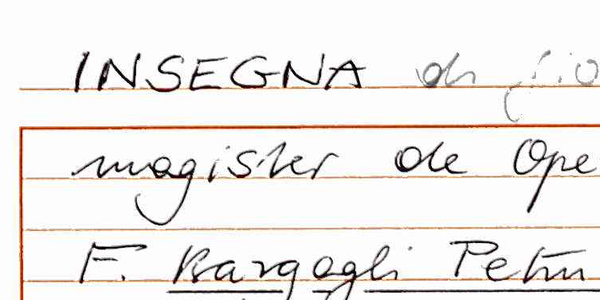 INSEGNA di
magister de Ope
F. Bargagli Petru